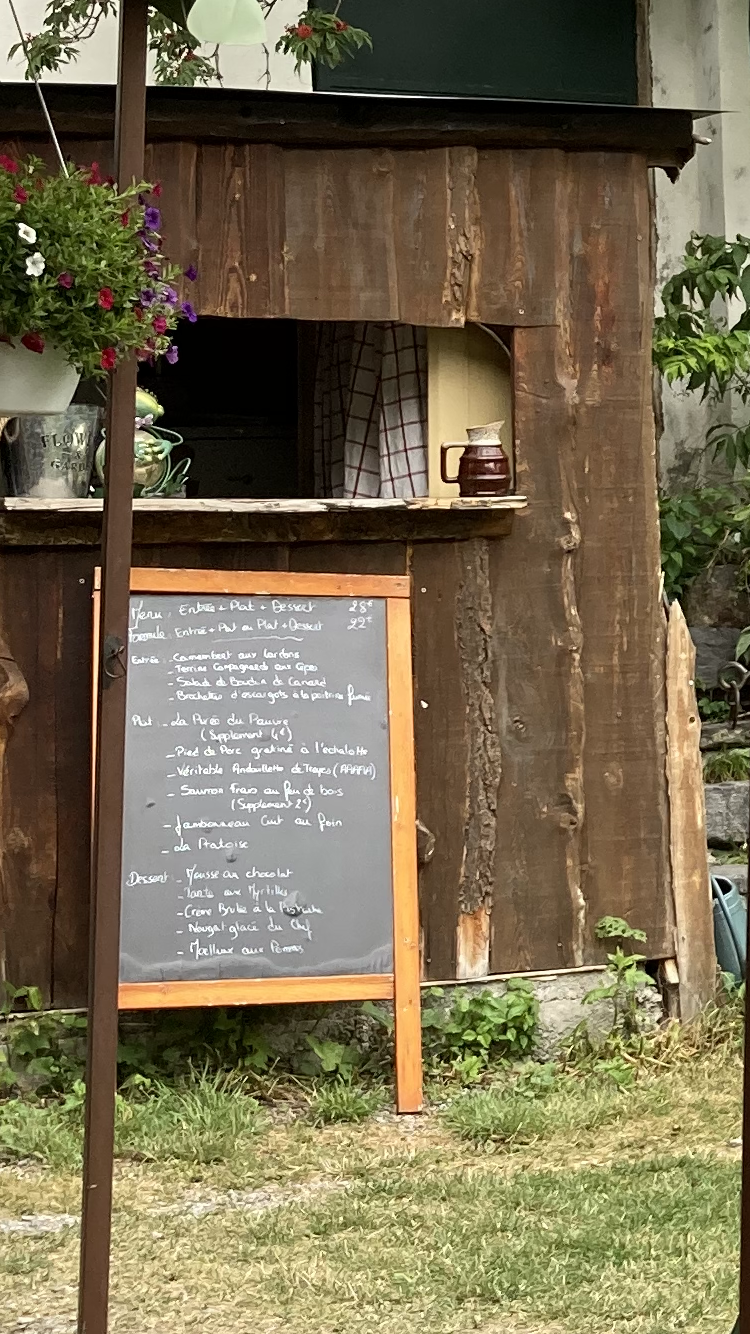 FLOW
&
GARD
Menu : Entrée + Plat + Dessert 28€
Formule : Entrée + Plat ou Plat + Dessert 22€
Entrée - Camembert aux lardons
- Terrine Campagnarde aux Cèpes
- Salade de Boudin de Canard
- Brochettes d'escargots à la poitrine fumée
Plat - La Purée du Pauvre
(Supplement 4€)
- Pied de Porc gratiné à l'échalotte
- Véritable Andouillette de Troyes (AAAAA)
- Saumon Frais au feu de bois
(Supplement 2€)
- Jambonneau Cuit au foin
- La
Dessert - Mousse au chocolat
- Tarte aux Myrtilles
- Crème Brulée à la Pistache
- Nougat glacé du Chef
- Moelleux aux Pommes